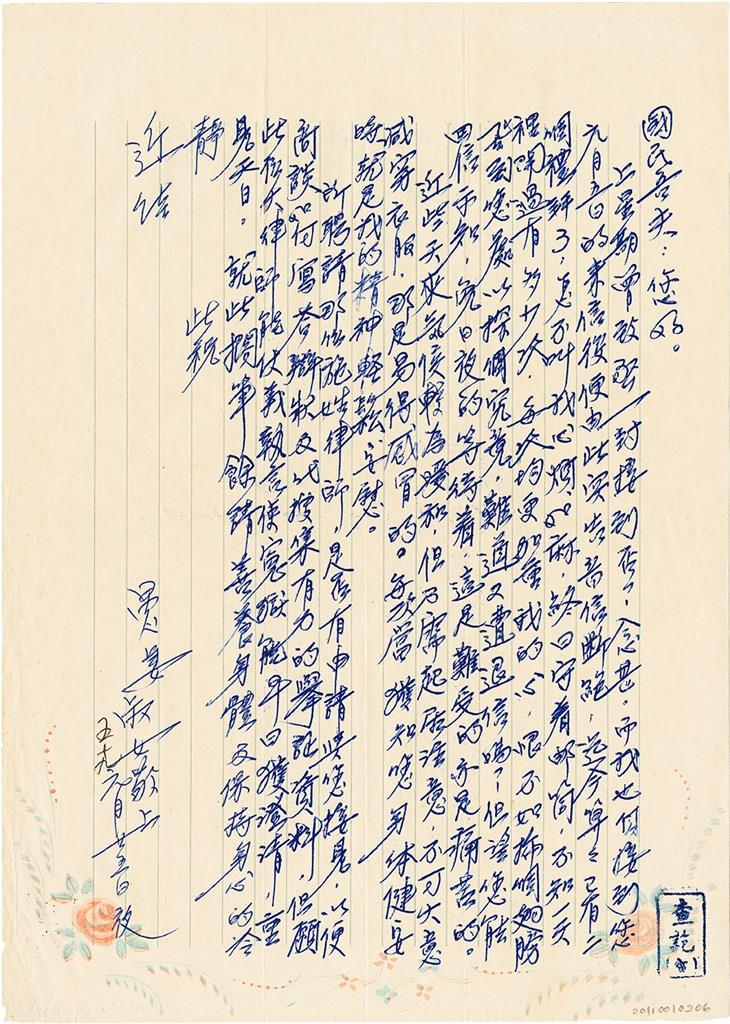 國民吾夫：您好。
上星期曾被發一封接到否？念甚。而我也但接到您
六月五日的來信後便由此突告音信斷絕，迄今算之已有二
個禮拜了，怎不叫我心煩如麻，終日守着郵筒，不知一天
裡開過有多少次，每次均更加重我的心，恨不如插個翅膀
飛到您處以探個究竟，難道又遭退信嗎？但謠您能
回信示知，免日夜的等待着，這是難受的亦是痛苦的。
近些天來氣候較為暖和，但乃需起居注意，不可大意
減穿衣服，那是易得感冒的。每次當獲知您身体健安
時就是我的精神輕鬆安慰。
所聘請那位施姓律師，是否有申請與您接見，以便
商談如何寫答辯狀及代搜集有力的舉証資料，但願
此位大律師能仗義執言使寃獄能早日獲澄清，重
見天日。就此擱筆 餘請善養身體及保持身心的冷
靜
此祝
近祉
愚妻 淑女敬上
五十九、六月廿五日夜
查訖
20110010206